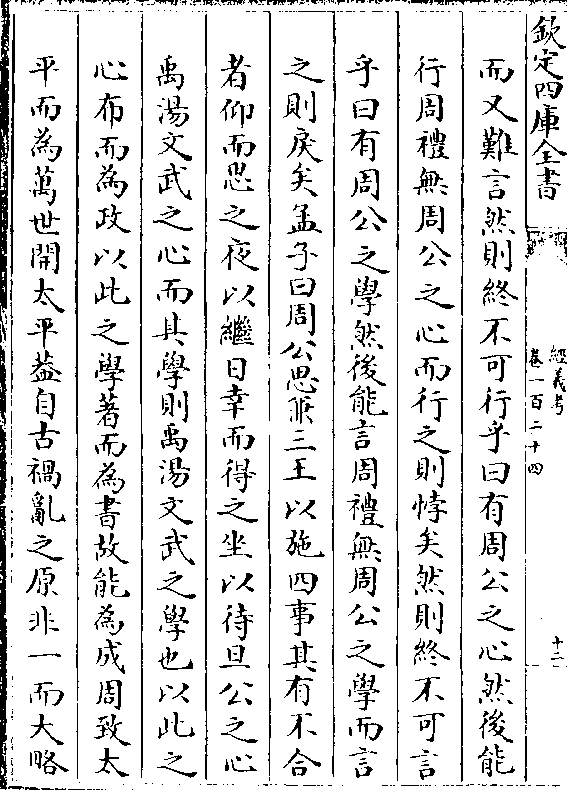 欽定四庫全書
經義考
卷一百二十四
十二
而又難言然則終不可行乎曰有周公之心然後能
行周禮無周公之心而行之則悖矣然則終不可言
乎曰有周公之學然後能言周禮無周公之學而言
之則戾矣孟子曰周公思兼三王以施四事其有不合
者仰而思之夜以繼日幸而得之坐以待旦公之心
禹湯文武之心而其學則禹湯文武之學也以此之
心布而為政以此之學著而為書故能為成周致太
平而為萬世開太平葢自古禍亂之原非一而大略